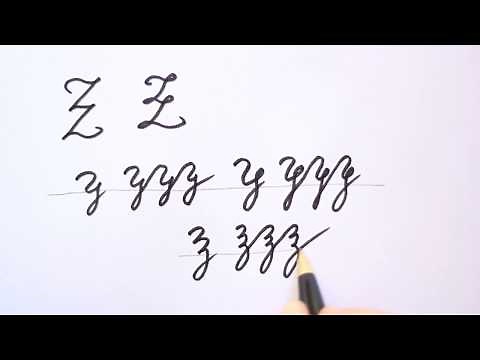 Z Z
z zzz z zzz
z zzz